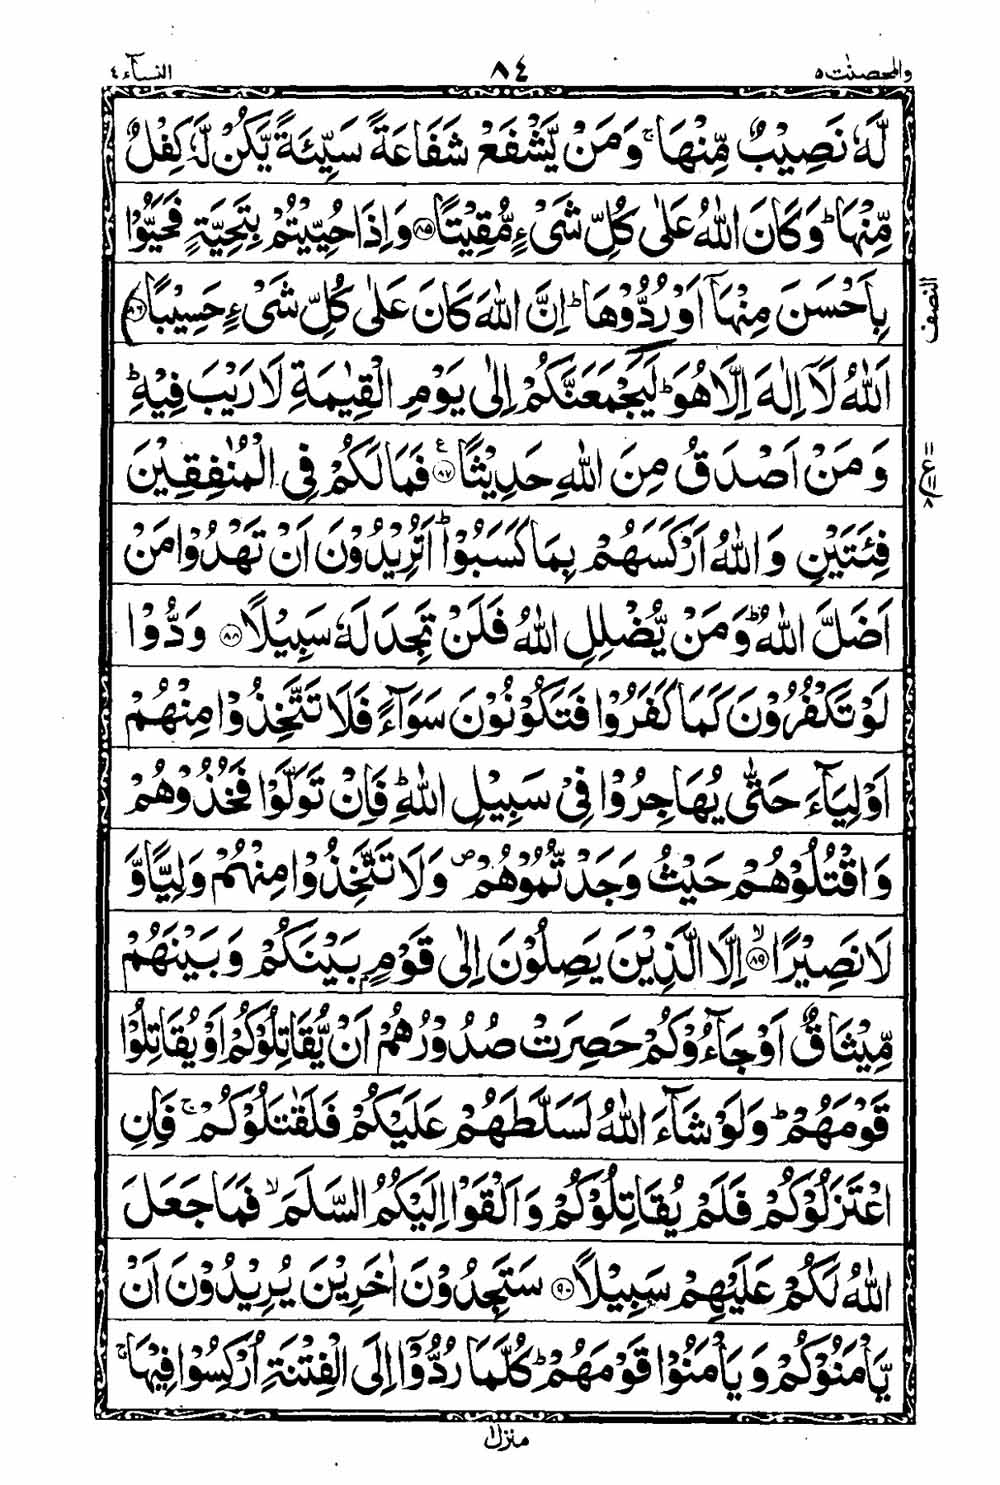 والمحصنت ٥ ٨٤ النسآء ٤
لَّهٗ نَصِيْبٌ مِّنْهَا ۚ وَمَنْ يَّشْفَعْ شَفَاعَةً سَيِّئَةً يَّكُنْ لَّهٗ كِفْلٌ
مِّنْهَا ؕ وَكَانَ اللّٰهُ عَلٰى كُلِّ شَىْءٍ مُّقِيْتًا ﴿۸۵﴾ وَاِذَا حُيِّيْتُمْ بِتَحِيَّةٍ فَحَيُّوْا
بِاَحْسَنَ مِنْهَاۤ اَوْ رُدُّوْهَا ؕ اِنَّ اللّٰهَ كَانَ عَلٰى كُلِّ شَىْءٍ حَسِيْبًا ﴿۸۶﴾
النصف
اَللّٰهُ لَاۤ اِلٰهَ اِلَّا هُوَ ؕ لَيَجْمَعَنَّكُمْ اِلٰى يَوْمِ الْقِيٰمَةِ لَا رَيْبَ فِيْهِ ؕ
وَمَنْ اَصْدَقُ مِنَ اللّٰهِ حَدِيْثًا ﴿۸۷﴾ ع فَمَا لَكُمْ فِى الْمُنٰفِقِيْنَ
ع ۸
فِئَتَيْنِ وَاللّٰهُ اَرْكَسَهُمْ بِمَا كَسَبُوْا ؕ اَتُرِيْدُوْنَ اَنْ تَهْدُوْا مَنْ
اَضَلَّ اللّٰهُ ؕ وَمَنْ يُّضْلِلِ اللّٰهُ فَلَنْ تَجِدَ لَهٗ سَبِيْلًا ﴿۸۸﴾ وَدُّوْا
لَوْ تَكْفُرُوْنَ كَمَا كَفَرُوْا فَتَكُوْنُوْنَ سَوَآءً فَلَا تَتَّخِذُوْا مِنْهُمْ
اَوْلِيَآءَ حَتّٰى يُهَاجِرُوْا فِىْ سَبِيْلِ اللّٰهِ ؕ فَاِنْ تَوَلَّوْا فَخُذُوْهُمْ
وَاقْتُلُوْهُمْ حَيْثُ وَجَدْتُّمُوْهُمْ ۪ وَلَا تَتَّخِذُوْا مِنْهُمْ وَلِيًّا وَّ
لَا نَصِيْرًا ۙ﴿۸۹﴾ اِلَّا الَّذِيْنَ يَصِلُوْنَ اِلٰى قَوْمٍۭ بَيْنَكُمْ وَبَيْنَهُمْ
مِّيْثَاقٌ اَوْ جَآءُوْكُمْ حَصِرَتْ صُدُوْرُهُمْ اَنْ يُّقَاتِلُوْكُمْ اَوْ يُقَاتِلُوْا
قَوْمَهُمْ ؕ وَلَوْ شَآءَ اللّٰهُ لَسَلَّطَهُمْ عَلَيْكُمْ فَلَقٰتَلُوْكُمْ ۚ فَاِنِ
اعْتَزَلُوْكُمْ فَلَمْ يُقَاتِلُوْكُمْ وَاَلْقَوْا اِلَيْكُمُ السَّلَمَ ۙ فَمَا جَعَلَ
اللّٰهُ لَكُمْ عَلَيْهِمْ سَبِيْلًا ﴿۹۰﴾ سَتَجِدُوْنَ اٰخَرِيْنَ يُرِيْدُوْنَ اَنْ
يَّاْمَنُوْكُمْ وَيَاْمَنُوْا قَوْمَهُمْ ؕ كُلَّمَا رُدُّوْۤا اِلَى الْفِتْنَةِ اُرْكِسُوْا فِيْهَا ۚ
منزل ۱